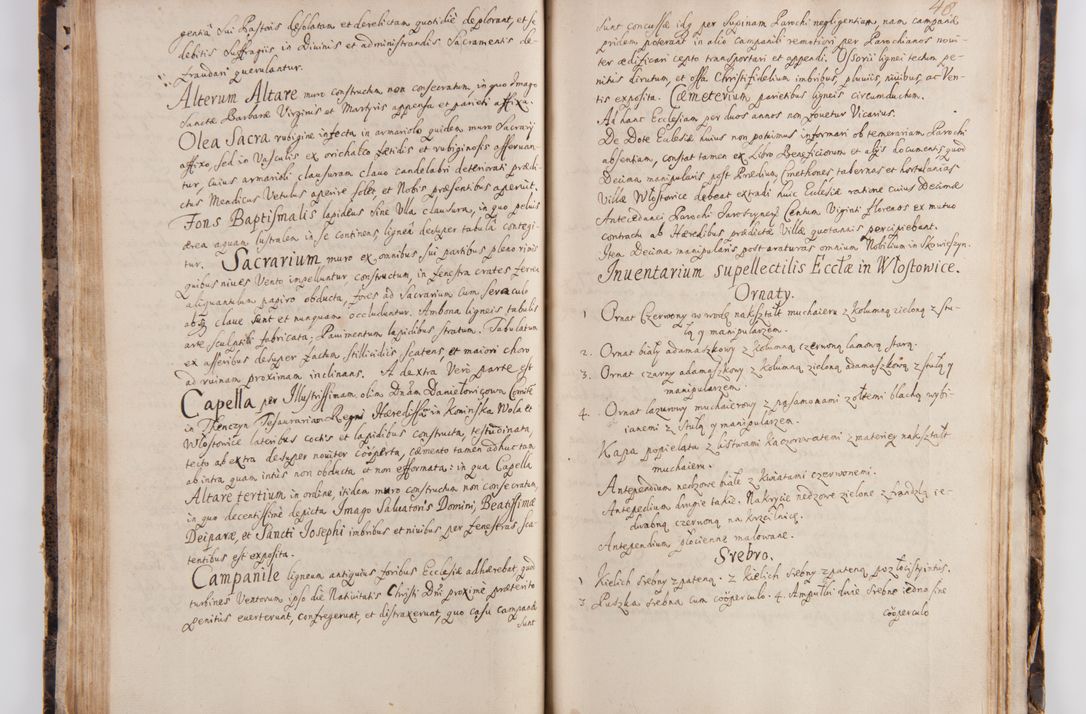 gentiâ sui Pastoris desolatam et derelictam quotidiè deplorant, et se
debitis Suffragiis in Divinis et administrandis Sacramentis de-
fraudari querulantur.
Alterum Altare muro constructum non consecratum, in quo Imago
Sanctæ Barbaræ Virginis et Martyris appensa et parieti affixa.
Olea Sacra rubigine infecta in armariolo quidem muro Sacrarij
affixo, sed in Vasculis ex orichalco fœtidis et rubiginosis asservan-
tur, cuius armarioli clausuram clavo candelabri deteriori prædi-
ctus Mendicus Vetulus aperire solet, et Nobis præsentibus aperuit.
Fons Baptismalis lapideus sine Ulla clausura, in quo pelvis
ærea aquam lustralem in se continens, ligneâ desuper tabulâ contegi-
tur. Sacrarium muro ex omnibus sui partibus pleno rimis
quibus nives Vento impelluntur constructum, in fenestra crates ferreæ
aliquantulum papiro obducta, fores ad Sacrarium cum seraculo
absq clave sunt et nunquam occluduntur. Ambona ligneis tabulis
arte sculptili fabricata, Pavimentum lapidibus stratum. Tabulatum
ex asseribus desuper factum stillicidijs scatens, et maiori choro
ad ruinam proximam inclinans. A dextra Verò parte est
Capella per Illustrissimum olim Dnum Danielowicyum Comitem
in Tenczyn Thesaurarium Regni Hæredissq in Koninska Wola et
Wlostowice lateribus coctis et lapidibus constructa, testudinata,
tecto ab extra desuper noviter coöperta, cæmento tamen adhuc tam
ab intra quam intùs non obducta et non efformata: in qua Capella
Altare tertium in ordine, itidem muro constructum non consecratum,
in quo decentissimè depicta Imago Salvatoris Domini, Beatissimæ
Deiparæ, et Sancti Josephi imbribus et nivibus per fenestras sca-
tentibus est exposita.
Campanile ligneum antiquius foribus Ecclesiæ adhærebat, quod
turbines Ventorum ipso die Nativitatis Christi Dni proximè præterito
penitùs everterunt, confregerunt, et distraxerunt, quo casu campanæ
sunt
48
sunt concussæ idq per supinam Parochi negligentiam, nam campanæ
pridem poterant in alio campanili remotiori per Parochianos novi-
ter ædificari cepto transportari et appendi. Ossorij lignei tectum pe-
nitùs dirutum, et ossa Christifidelium imbribus, pluvijs, nivibus, ac Ven-
tis exposita. Cæmeterium parietibus ligneis circumductum.
Ad hanc Ecclesiam per duos annos non fovetur Vicarius.
De Dote Ecclesiæ huius non potuimus informari ob temerariam Parochi
absentiam, constat tamen ex Libro Beneficiorum et alijs documentis quod
Decima manipularis post Prædium, Cmethones, tabernas et hortulanias
Villæ Wlostowice debeat extradi huic Ecclesiæ ratione cuius Decimæ
Antecedanei Parochi Parochiynej Centum Viginti florenos ex mutuo
contractu ab Hæredibus prædictæ Villæ quotannis percipiebant.
Item Decima manipularis post araturas omnium Nobilium in Skowieszyn.
Inventarium supellectilis Eccłæ in Wlostowice.
Ornaty.
1 Ornat Czerwony w wodę nakształt muchaieru z kolumną zieloną z stu-
łą y manipularzem.
2. Ornat biały adamaszkowy z kolumną czerwoną lamową starą.
3. Ornat czarny adamaszkowy z kolumną zieloną adamaszkową z stułą y
manipularzem.
4. Ornat lazurowy muchaierowy z pasamonami żołtemi blachą wybi-
ianemi z stułą y manipularzem.
Kappa popielata z listwami kaczorowatemi z materiey nakształt
muchaieru.
Antependium nedzowe białe z kwiatami czerwonemi.
Antepedium drugie takie. Nakrycie nedzowe zielone z frandzlą ie-
dwabną czerwoną na krzcilnicę.
Antependium płocienne malowane.
Srebro.
1 Kielich srebny z pateną. 2 Kielich srebny z pateną pozłocisty intus.
3 Puszka srebna cum coöperculo. 4. Ampułki dwie srebne iedna sine
coöperculo